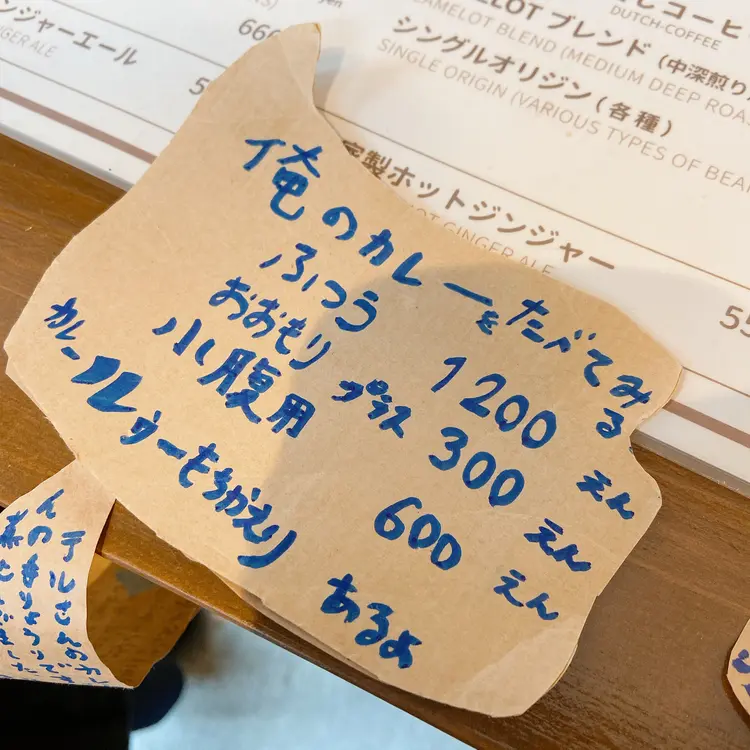 ンジャーエール
GINGER ALE
666
コーヒー
DUTCH-COFFEE
LOT ブレンド (中深煎り
CAMELOT BLEND (MEDIUM DEEP ROAS
シングルオリジン (各種)
SINGLE ORIGIN (VARIOUS TYPES OF BEAN
家製ホットジンジャー
HOT GINGER ALE
55
俺のカレーをたべてみる
ふつう 1200 えん
おおもり プラス 300 えん
小腹用 600 えん
カレールゥーもちかえり あるよ
テルさんのカレ